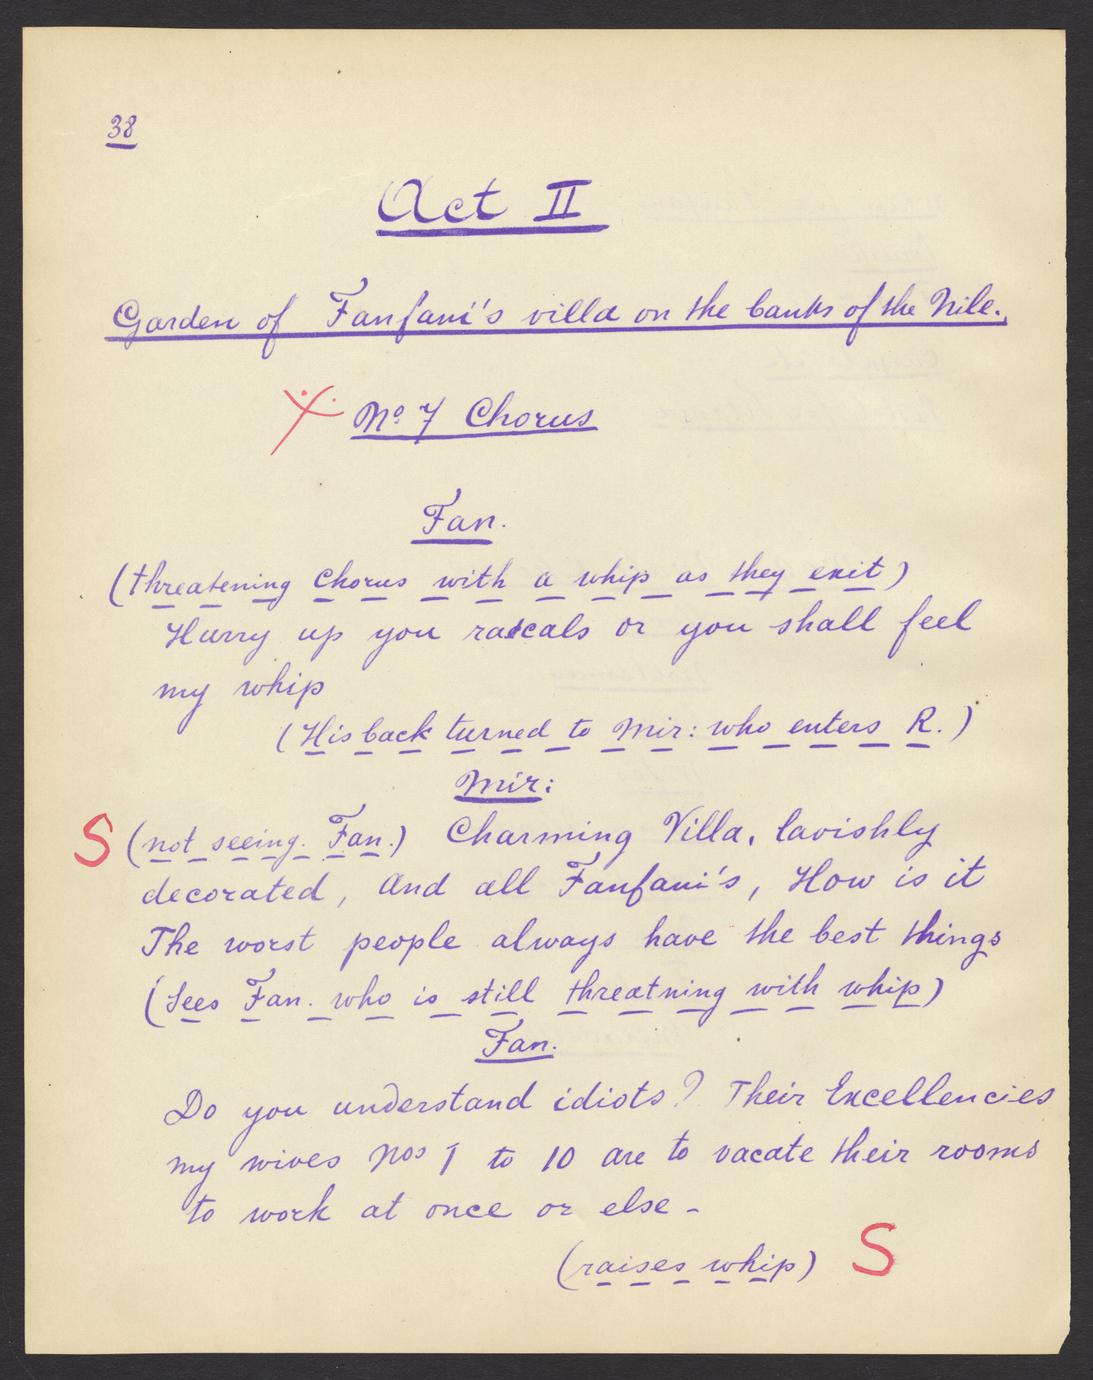 38
Act II
Garden of Fanfani's villa on the banks of the Nile.
No 7 Chorus
Fan.
(threatening Chorus with a whip as they exit)
Hurry up you rascals or you shall feel
my whip
(His back turned to Mir: who enters R.)
Mir:
S (not seeing Fan.) Charming Villa, lavishly
decorated, And all Fanfani's, How is it
The worst people always have the best things
(Sees Fan. who is still threatning with whip)
Fan.
Do you understand idiots? Their Excellencies
my wives Nos 1 to 10 are to vacate their rooms
to work at once or else -
(raises whip) S